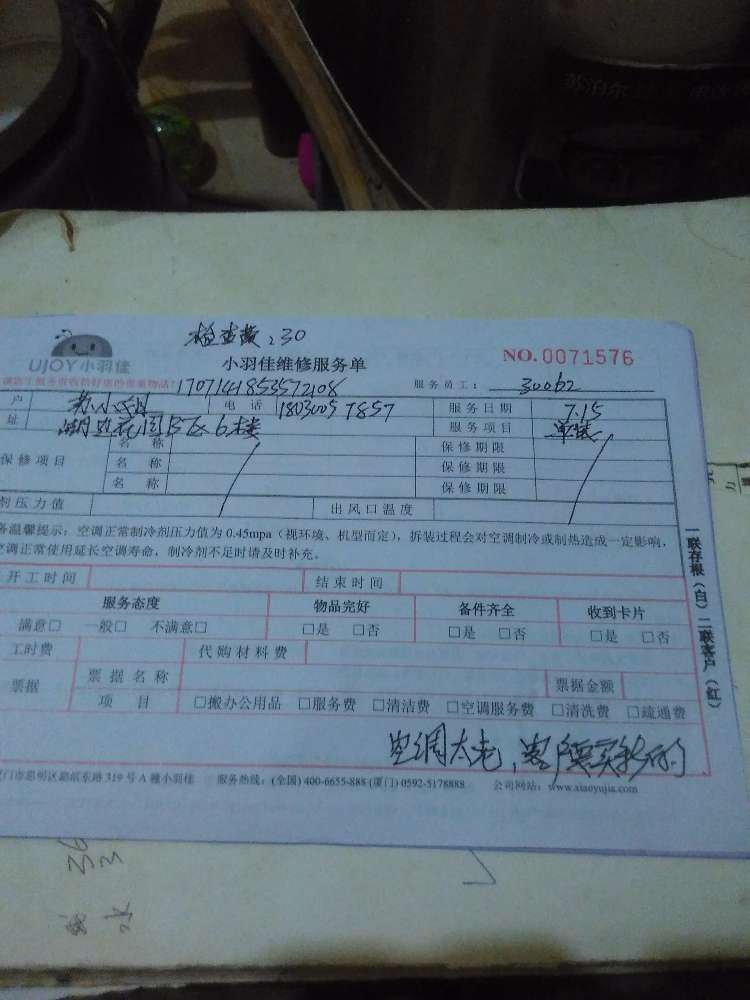 苏泊尔
检查费：30
UJOY小羽佳
小羽佳维修服务单
NO.0071576
1707141853572108
服务员工：30062
户 苏小姐 电话 18030057857 服务日期 7.15
址 湖边花园B区6楼 服务项目 单装
名称 保修期限
保修项目 名称 保修期限
名称 保修期限
剂压力值 出风口温度
温馨提示：空调正常制冷剂压力值为 0.45mpa（视环境、机型而定），拆装过程会对空调制冷或制热造成一定影响，
空调正常使用延长空调寿命，制冷剂不足时请及时补充。
开工时间 结束时间
服务态度 物品完好 备件齐全 收到卡片
满意□ 一般□ 不满意□ □是 □否 □是 □否 □是 □否
工时费 代购材料费
票据 票据名称 票据金额
项目 □搬办公用品 □服务费 □清洁费 □空调服务费 □清洗费 □疏通费
空调太老，客户要买新的
门市思明区湖滨东路 319 号 A 幢小羽佳 服务热线：(全国) 400-6655-888 (厦门) 0592-5178888 公司网站：www.xiaoyujia.com
一联存根（白）二联客户（红）
36